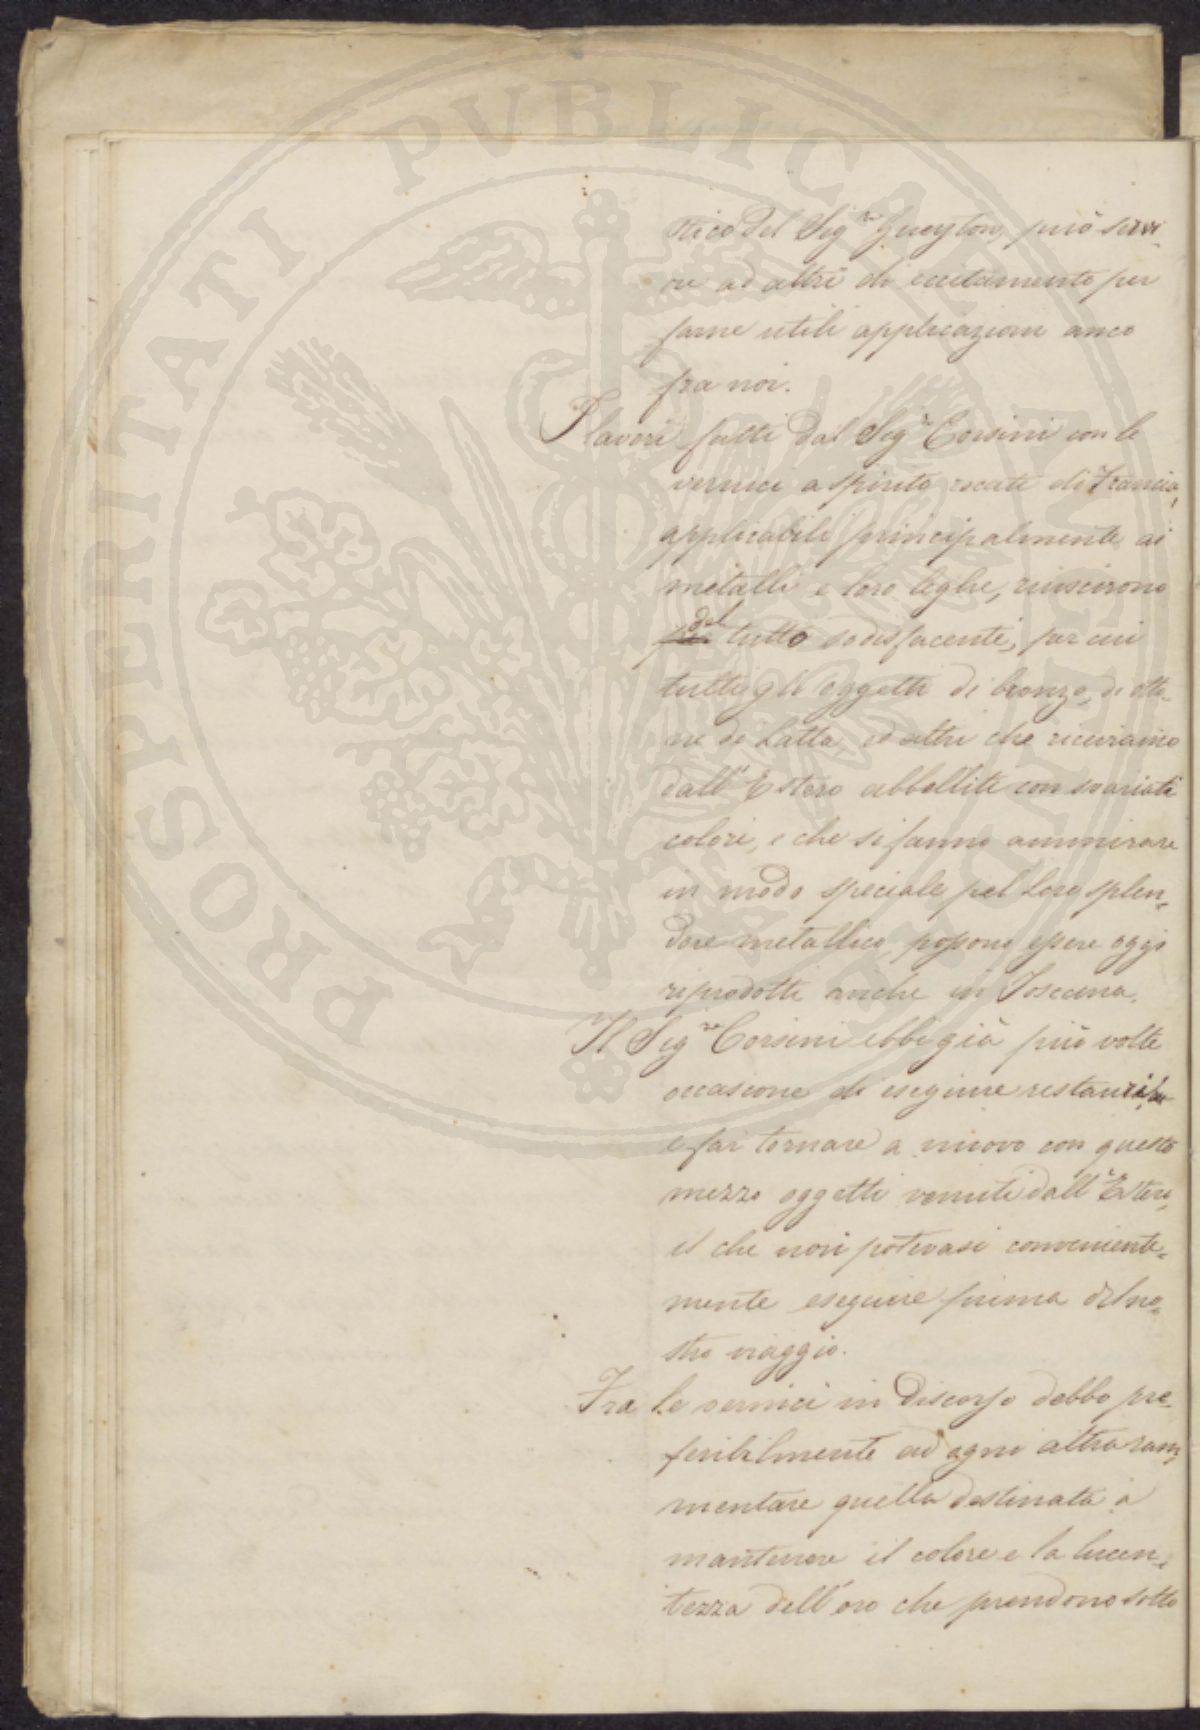 PROSPERITATI PUBLICAE AUGENDAE
stico del Sig.re Gueyton, può servi-
re ad altri di eccitamento per
farne utili applicazioni anco
fra noi.
I lavori fatti dal Sig.r Corsini con le
vernici a spirito recate di Francia,
applicabili principalmente ai
metalli e loro leghe, riuscirono
del tutto sodisfacenti, per cui
tutti gli oggetti di bronzo, di otto-
ne di Latta, ed altri che riceviamo
dall'Estero abbelliti con svariati
colori, e che si fanno ammirare
in modo speciale pel Loro splen-
dore metallico, possono essere oggi
riprodotti anche in Toscana.
Il Sig.re Corsini ebbe già più volte
occasione di eseguire restauri,
e far tornare a nuovo con questo
mezzo oggetti venuti dall'Estero,
il che non potevasi conveniente-
mente eseguire prima del no-
stro viaggio.
Fra le vernici in discorso debbo pre-
feribilmente ad ogni altra ram-
mentare quella destinata a
mantenere il colore e la lucen-
tezza dell'oro che prendono sotto